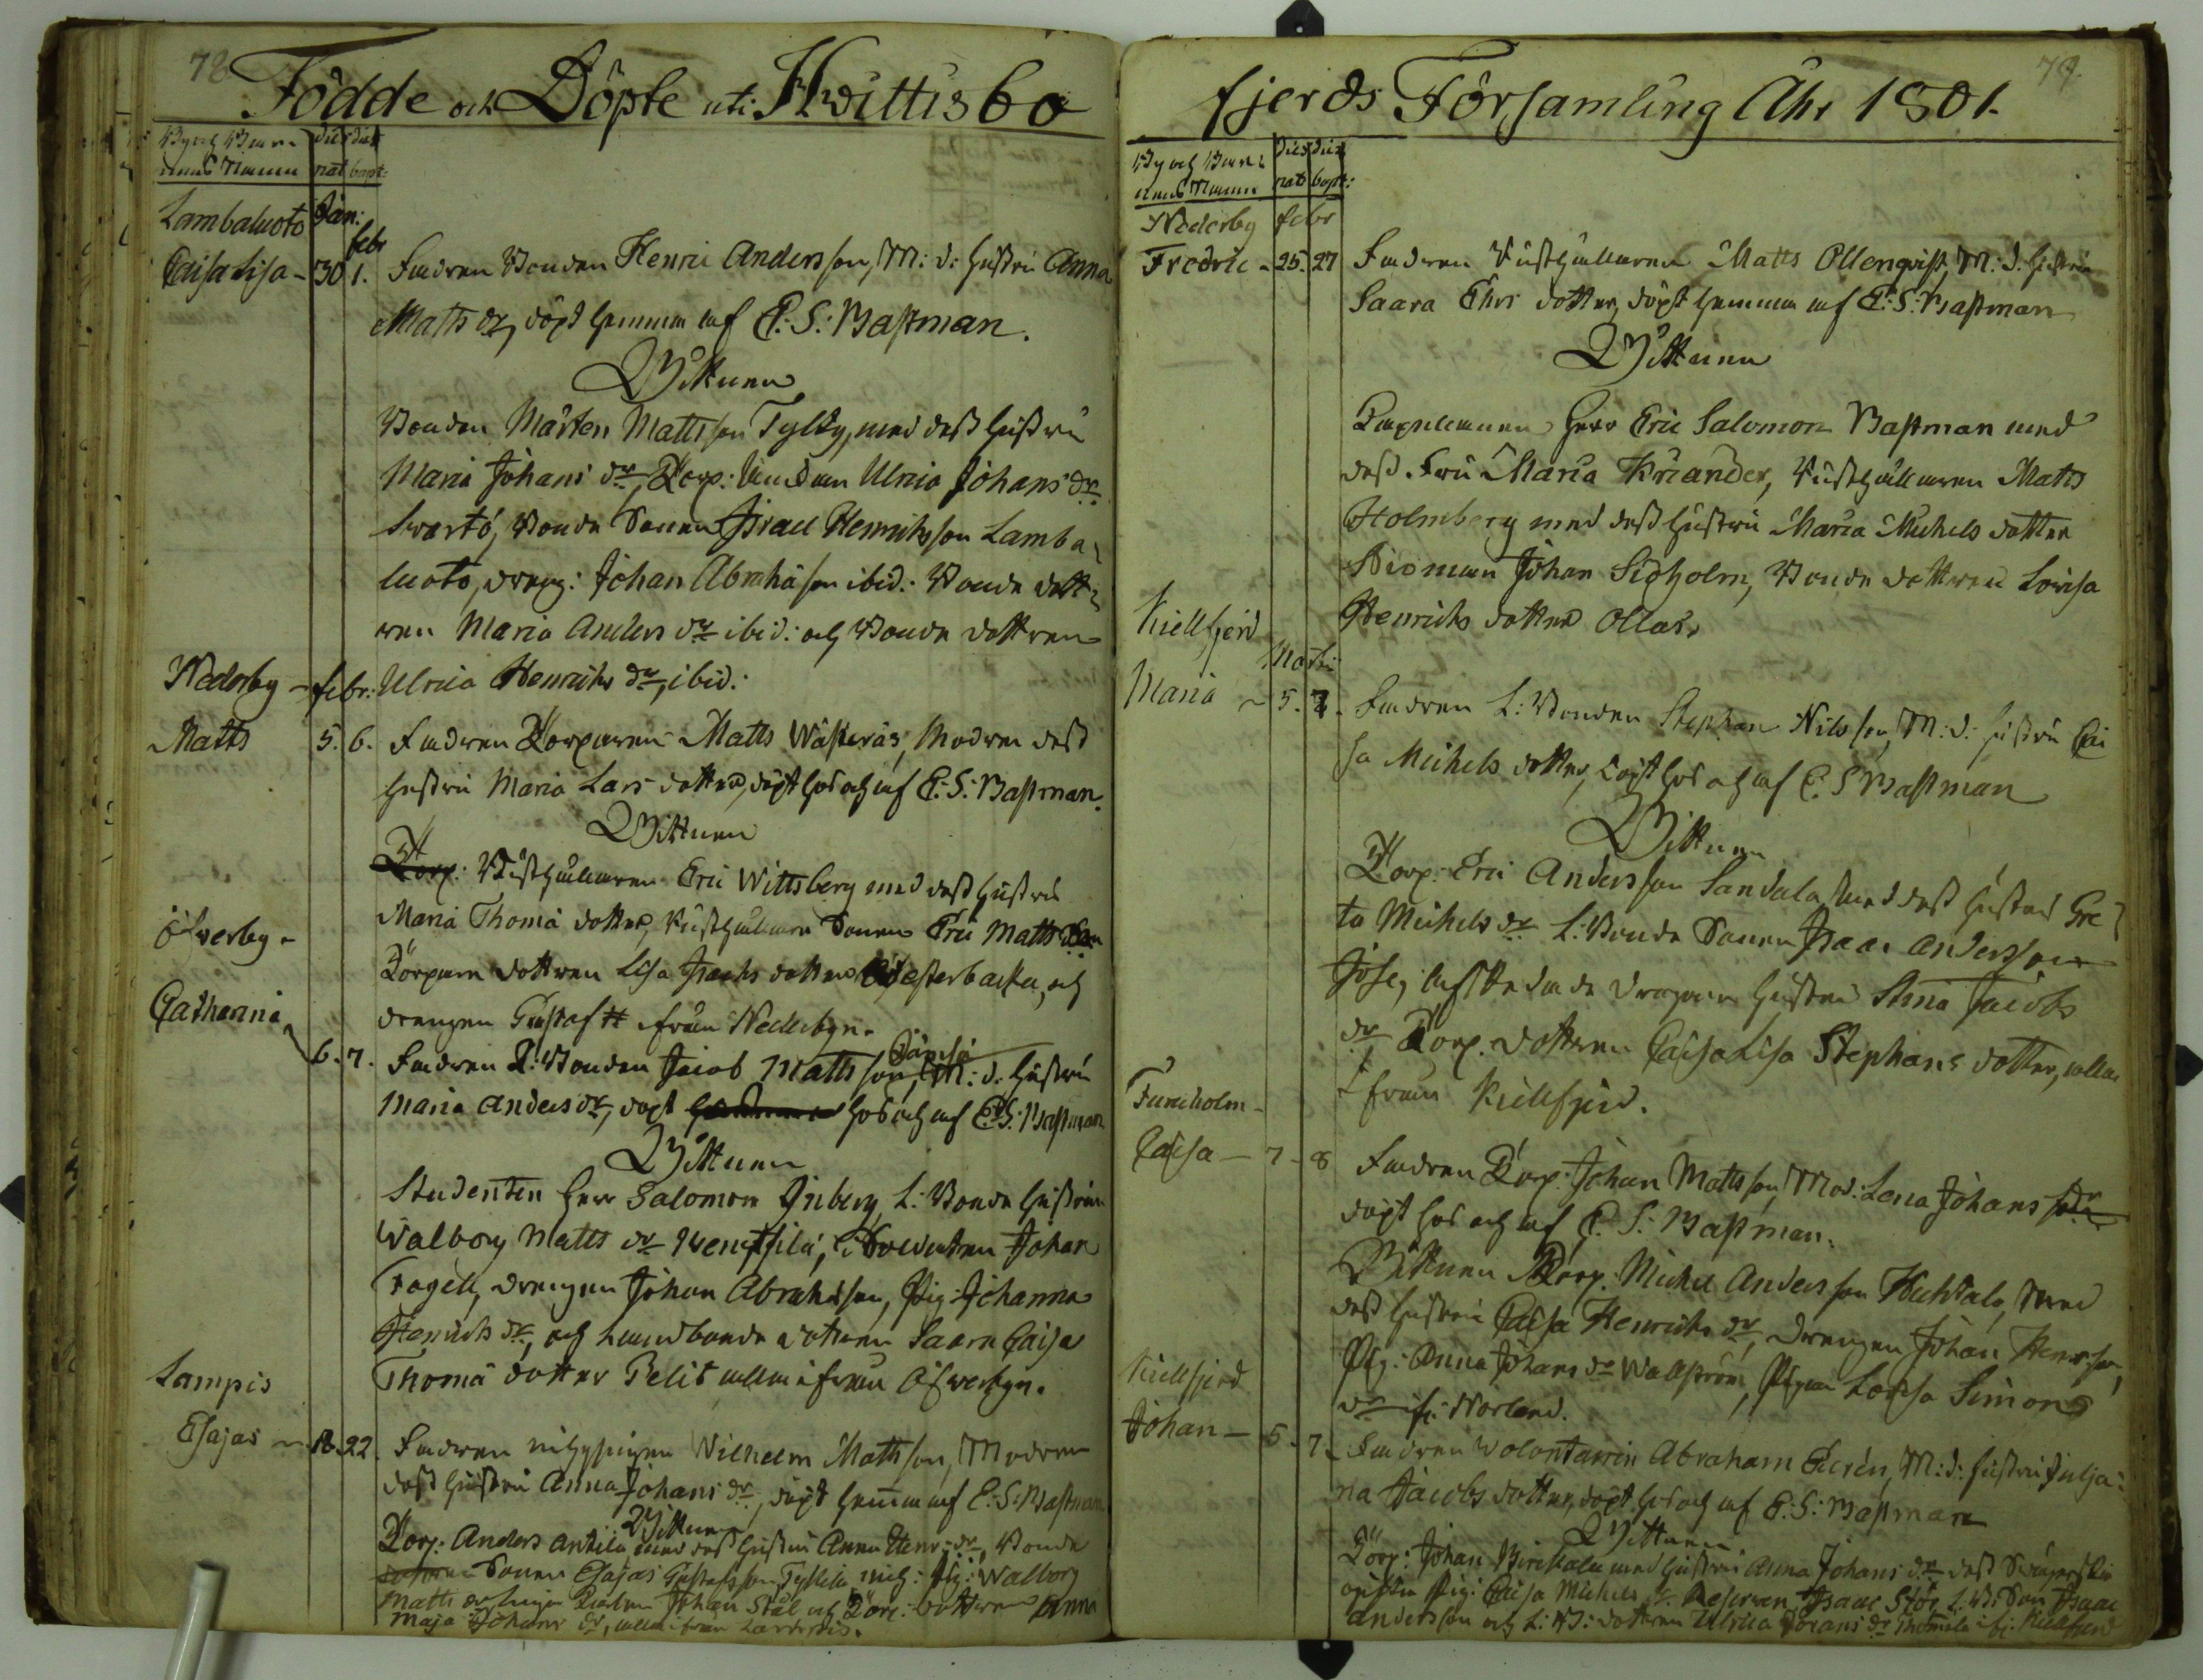 78
Födde och Döpte uti Hwittisbo
By och Bar- dies dies
nens Namn nat bapt:
Lambaluoto Jan:
febr
Caisa Lisa - 30 1. Fadren Bonden Henric Andersson, M: d: hustru Anna
Matts dr, döpt hemma af E: S: Bastman.
Wittnen
Bonden Mårten Mattsson Tylky, med dess hustru
Maria Johans dr, Torp: Ulrica Johans dr
Swartö, Bonde Sonen Israel Henricksson Lamba
luoto, dreng: Johan Abrahasson ibid: Bonde dott
ren Maria Anders dr ibid: och Bonde dottren
Nederby - febr: Ulrica Henrichs dr, ibid:
Matts 5. 6. Fadren Torparen Matts Wästerås, Modren dess
hustru Maria Lars dotter, döpt hos och af E: S: Bastman.
Wittnen
Torp: Rusthållaren Eric Wittsberg med dess hustru
Maria Thoma dotter, Rusthållare Sonen Eric Matts Son
Öfwerby -
Torpare dottren Lisa Isachs dotter Westerbacka, och
Catharina
drengen Gustaf H ifrån Nederbyn.
6. 7. Fadren L: Bonden Jacob Mattsson, M: d: hustru
Maria Anders dr, döpt hos och af E: S: Bastman
Wittnen
Studenten Herr Salomon Ginberg, L: Bonde hustrun
Walborg Matts dr Wentsilä, Johan
Fogell, drengen Johan Abrahasson, Pig: Johanna
Henrichs dr, och Landbonde dottren Saara Caisa
Lampis
Thoma dotter Pelit alla ifrån Öfwerbyn.
Esajas - 18. 22. Fadren Wilhelm Mattsson, Modren
dess hustru Anna Johans dr, döpt hemma af E: S: Bastman
Wittnen
Torp: Anders Antila med dess hustru Anna Henr: dr, Bonde
Sonen Esajas Gustafsson Tyllilä Pig: Walborg
Matts dr Johan Stål och Torp: dottren Anna
Maja Johans dr, alla ifrån Lampis.
79.
fjerds Församling Åhr 1801.
By och Bar- dies dies
nens Namn nat bapt:
Nederby febr
Fredric - 25. 27 Fadren Rusthållaren Matts Ollenqvist, M: d: hustru
Saara Chrs dotter, döpt hemma af E: S: Bastman
Wittnen
Capellanen Herr Eric Salomon Bastman med
dess Fru Maria Kriander, Rusthållaren Matts
Holmberg med dess hustru Maria Michels dotter
Johan Sidholm, Bonde dottren Lovisa
Kiellfjerd
Henrichs dotter Ollas.
Marti
Maria - 5. 7. Fadren L: Bonden Stephan Nilsson, M: d: hustru Cai
sa Michels dotter, döpt hos och af E: S Bastman
Wittnen
Torp: Eric Andersson Sandala, med dess hustru Gre
ta Michels dr L: Bonde Sonen Isaac Andersson
hustru Stina Jacobs
dr Torp. dottren Caisa Lisa Stephans dotter, alla
ifrån Kiellfjerd.
Funcholm -
Caisa - 7 - 8 Fadren Torp: Johan Mattsson, Mod: Lena Johans dr
döpt hos och af E. S: Bastman.
Wittnen Torp: Michel Andersson Huhtala, med
dess hustru Caisa Henrichs dr, drengen Johan Henrsson,
Kiellfjerd
Pig: Anna Johans dr Wallström, Pigan Lovisa Simons
dr if: Norland.
Johan - 5. 7. Fadren Volontairen Abraham Ekrén, M: d: hustru Julja:
na Jacobs dotter, döpt hos och af E: S: Bastman
Wittnen.
Torp: Johan Birckala med hustru Anna Johans dr dess Swägerska
Pig: Caisa Michels dr. Reserven Isaac Stör, L: B: Son Isaac
Andersson och L: B: dottren Ulrica Johans dr Thomila if: Kiellfjerd